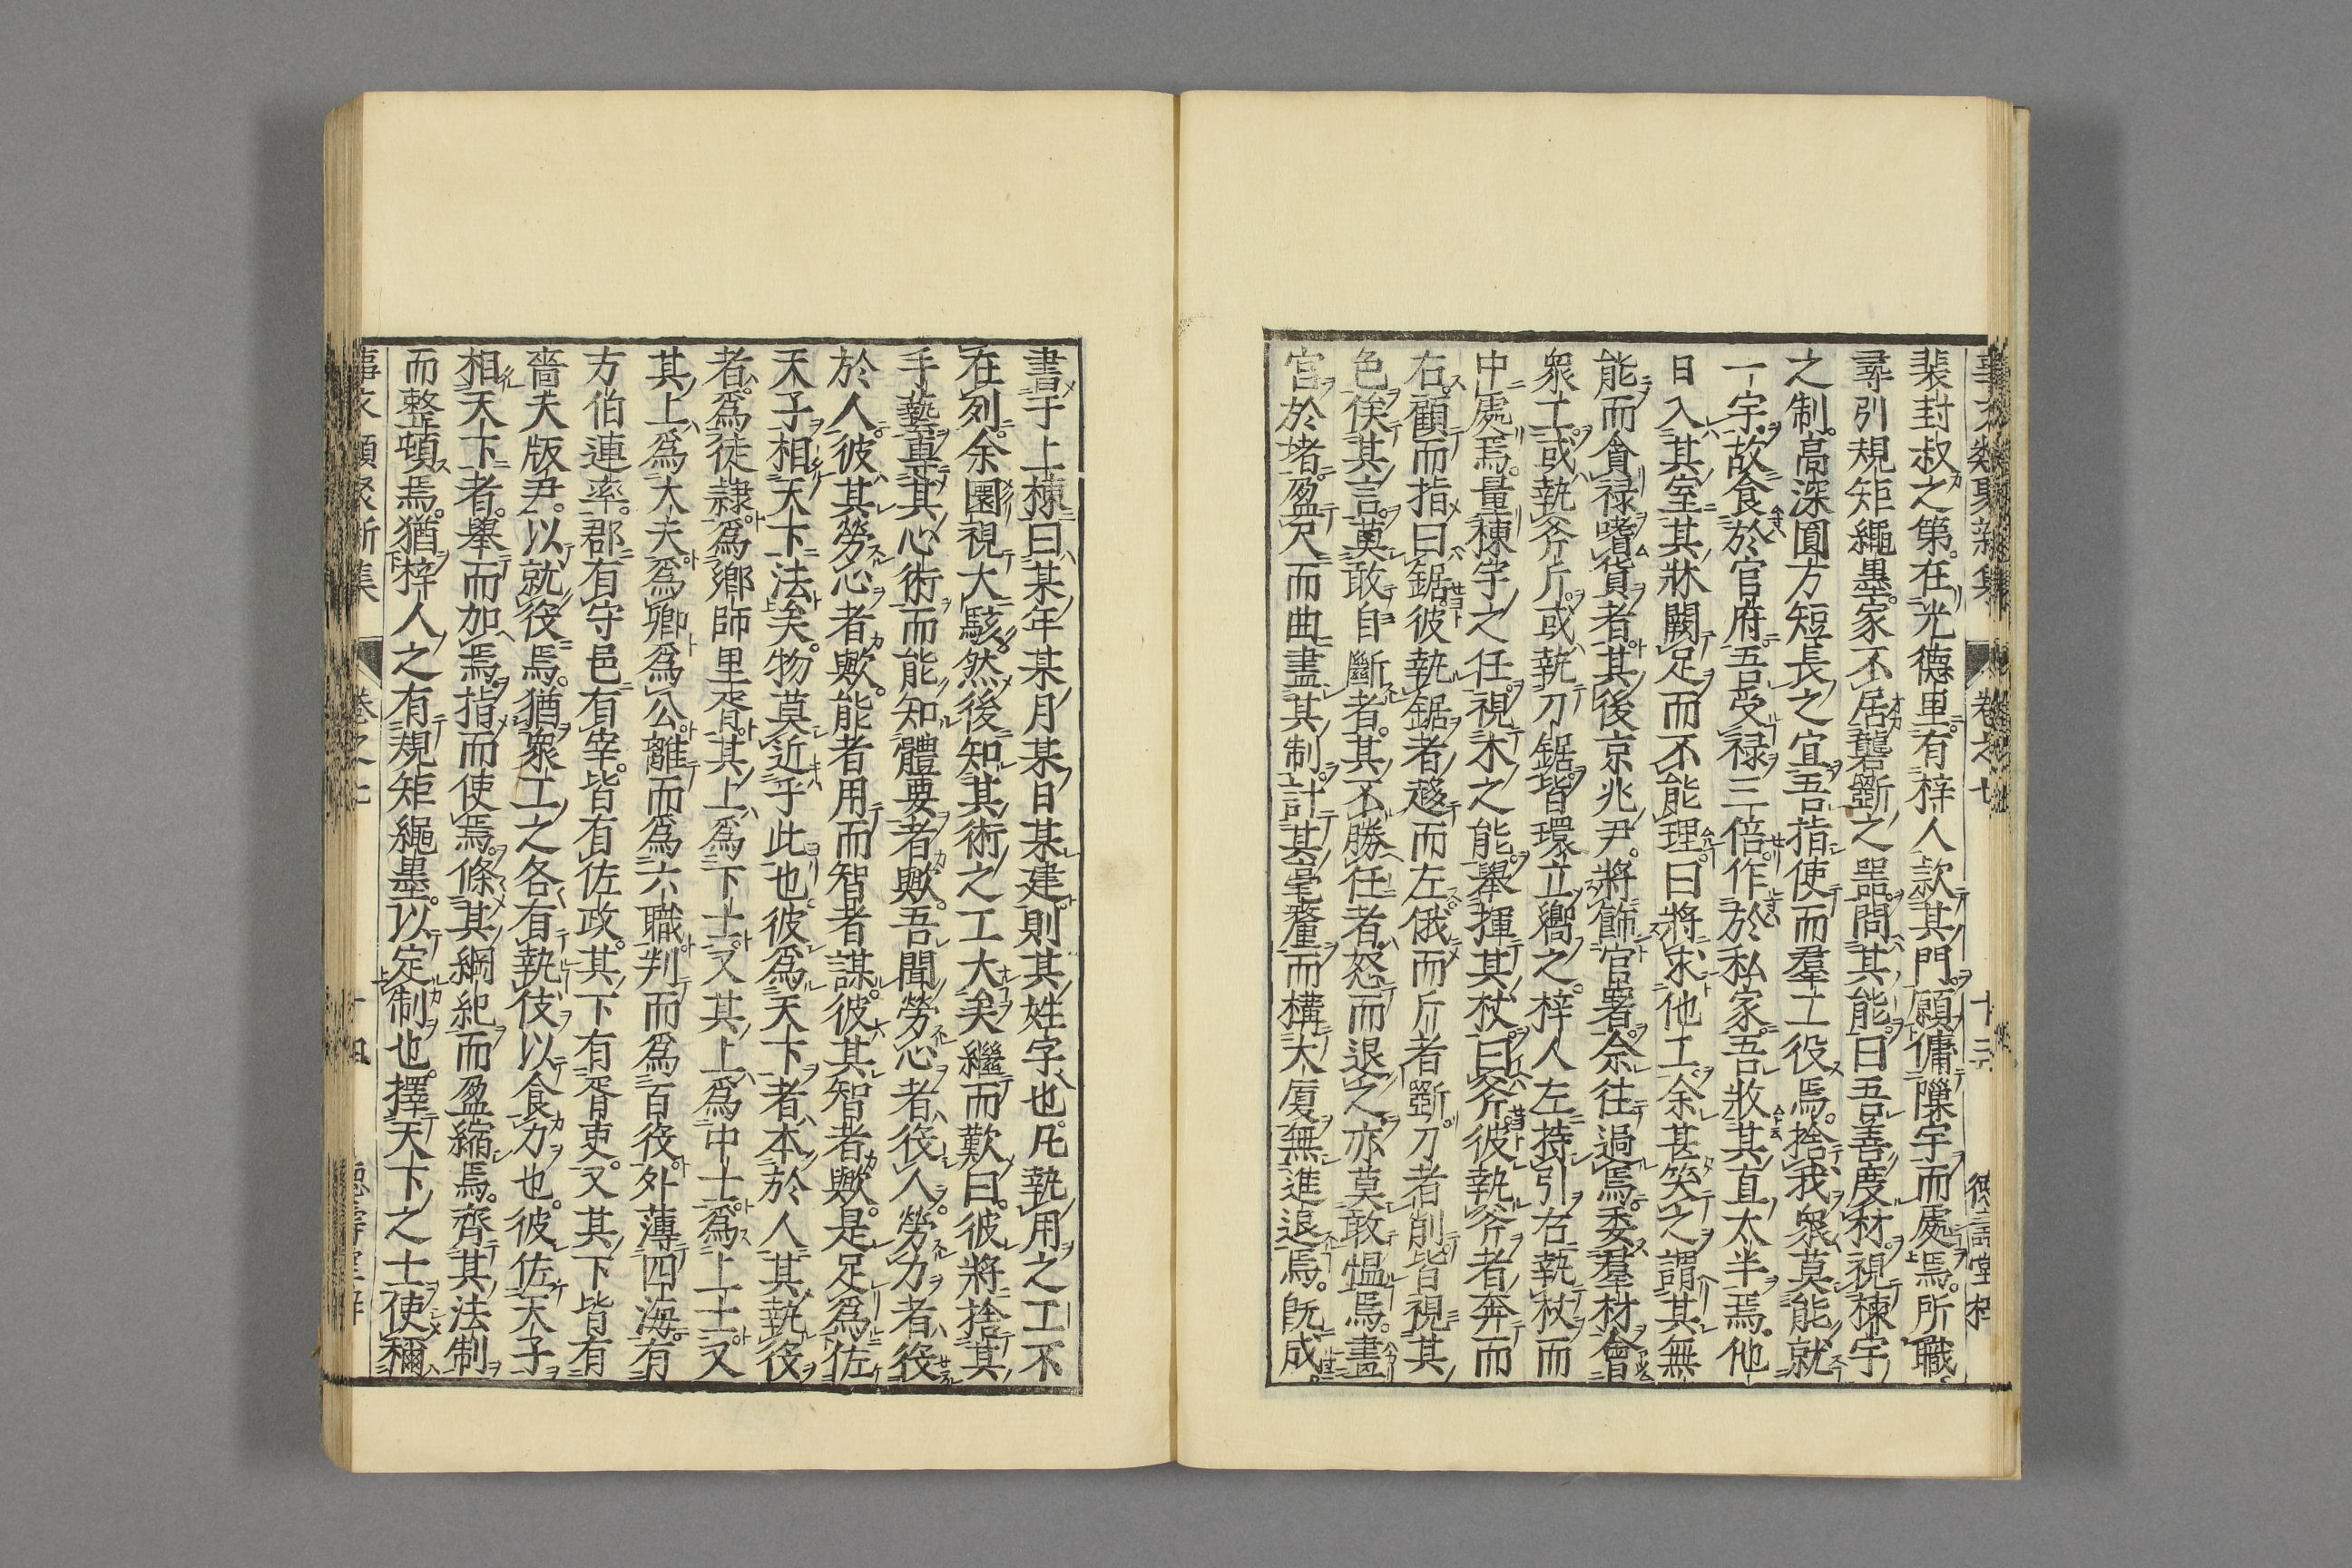 事文類聚新集 卷之七 十三 德壽堂梓
裴封叔之第。在光德里。有梓人款其門。願傭隟宇而處焉。所職。
尋引規矩繩墨。家不居礱斵之噐。問其能。曰吾善度材。視棟宇
之制。高深圓方短長之宜。吾指使而羣工役焉。捨我衆莫能就
一宇。故食於官府。吾受禄三倍。作於私家。吾收其直太半焉。他
日入其室。其牀闕足而不能理。曰將求他工。余甚笑之。謂其無
能而貪禄嗜貨者。其後京兆尹。將飾官署。余徃過焉。委羣材會
衆工。或執斧斤。或執刀鋸。皆環立嚮之。梓人左持引右執杖而
中處焉。量棟宇之任。視木之能。舉揮其杖。曰斧。彼執斧者奔而
右。顧而指曰鋸。彼執鋸者趍而左。俄而斤者斵。刀者削。皆視其
色俟其言。莫敢自斷者。其不勝任者。怒而退之。亦莫敢愠焉。畫
宮於堵。盈尺而曲盡其制。計其毫釐而構大厦。無進退焉。旣成。
書于上棟曰某年某月某日某建。則其姓字也。凡執用之工不
在列。余圜視大駭。然後知其術之工大矣。繼而歎曰。彼將捨其
手藝。專其心術。而能知體要者歟。吾聞勞心者役人。勞力者役
於人。彼其勞心者歟。能者用而智者謀。彼其智者歟。是足爲佐
天子相天下法矣。物莫近乎此也。彼爲天下者。本於人。其執役
者。爲徒隷。爲鄕師里胥。其上爲下士。又其上爲中士。爲上士。又
其上爲大夫。爲卿。爲公。離而爲六職。判而爲百役。外薄四海。有
方伯連率。郡有守。邑有宰。皆有佐政。其下有胥吏。又其下皆有
嗇夫版尹。以就役焉。猶衆工之各有執伎以食力也。彼佐天子
相天下者。舉而加焉。指而使焉。條其綱紀而盈縮焉。齊其法制
而整頓焉。猶梓人之有規矩繩墨。以定制也。擇天下之士。使稱
事文類聚新集 卷之七 十四 德壽堂梓